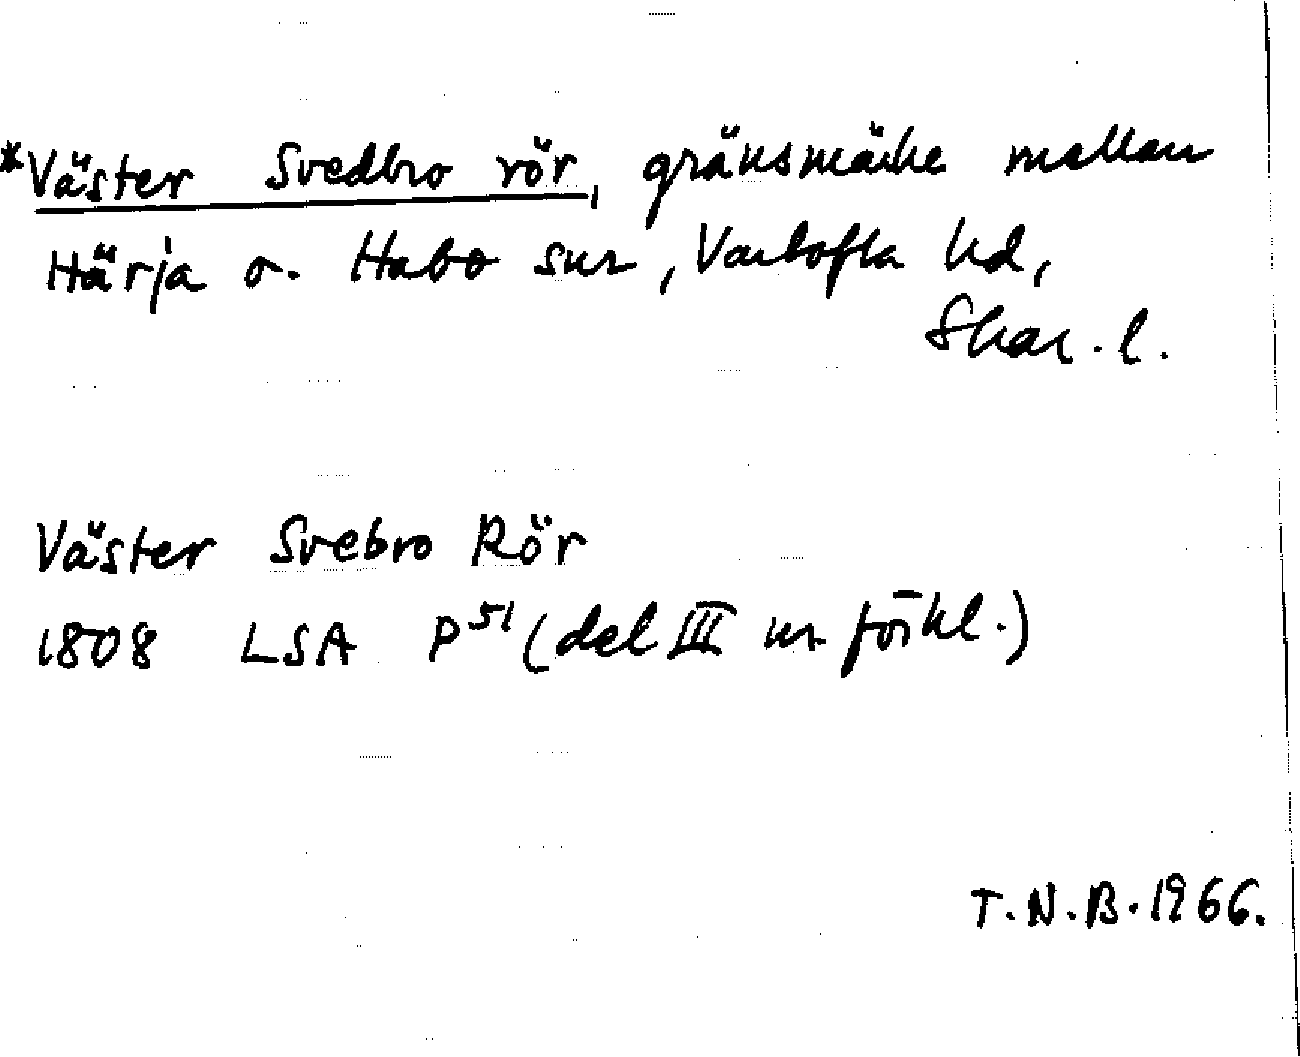 *Väster Svedbro rör, gränsmärke mellan
Härja o. Habo snr, Vartofta hd,
Skar. l.
Väster Svebro Rör
1808 LSA P⁵¹ (del III ur förkl.)
T.N.B. 1966.